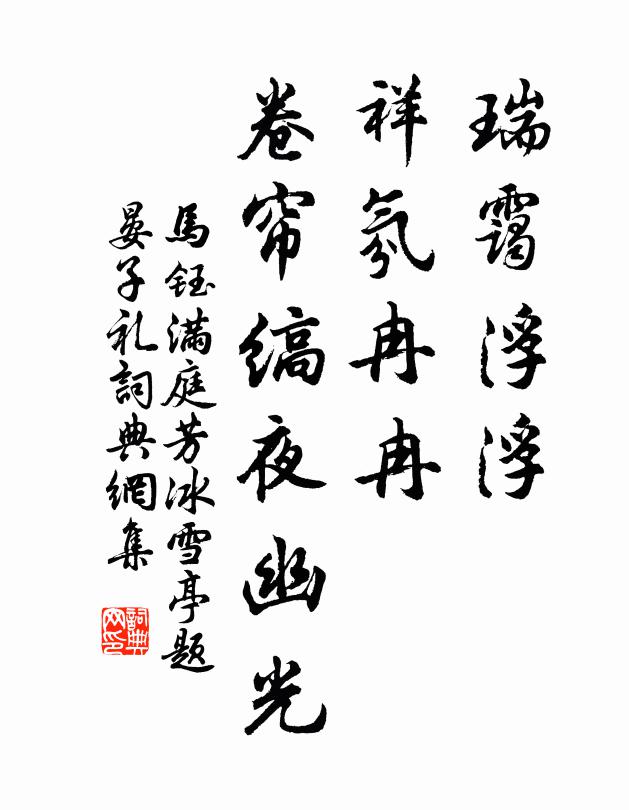 瑞靄浮浮
祥氛冉冉
卷帘縞夜幽光
馬鈺满庭芳冰雪亭题
晏子礼詞典網集
詞典网印